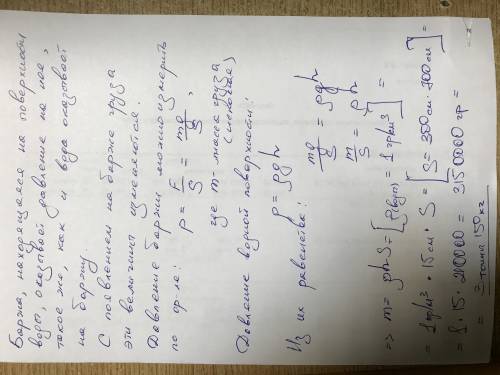 Баржа, находящаяся на поверхности
воды, оказывает давление на нее,
такое же, как и вода оказывает
на баржу.
С появлением на барже груза
эти величины изменяются.
Давление баржи можно измерить
по ф-ле: p = F/S = mg/S ,
где m - масса груза
(искомая)
Давление водной поверхности:
p = ρgh
Из их равенства: mg/S = ρgh
m/S = ρh
=> m = ρhS = [ρ(воды) = 1 гр/см³] =
= 1 гр/см³ · 15 см · S = [S = 300 см · 700 см] =
= 1 · 15 · 210000 = 3150000 гр =
= 3 тонны 150 кг